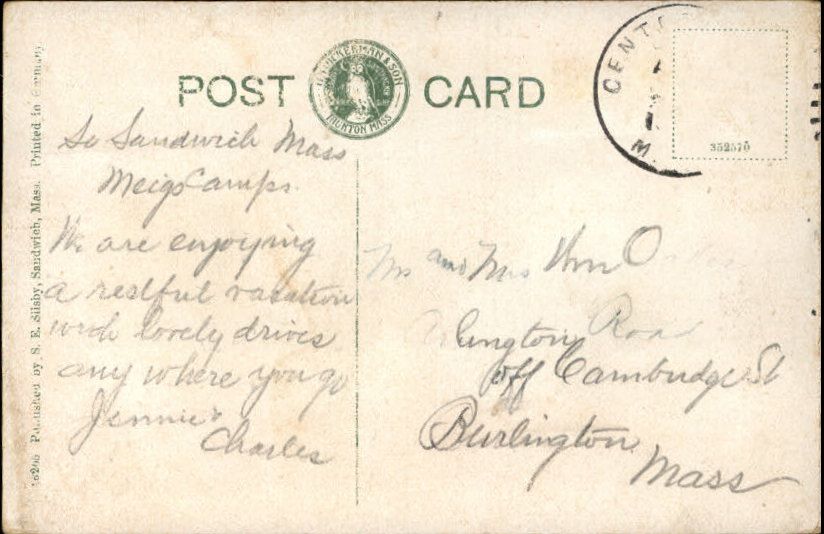 POST CARD
TAUNTON MASS
CENT
M
352570
So Sandwich Mass
Meigs Camps.
We are enjoying
a restful vacation
with lovely drives
any where you go
Jennie &
Charles
Mr and Mrs Wm O
lington Road
off Cambridge St
Burlington
Mass
Published by S. E. Silsby, Sandwich, Mass. Printed in Germany